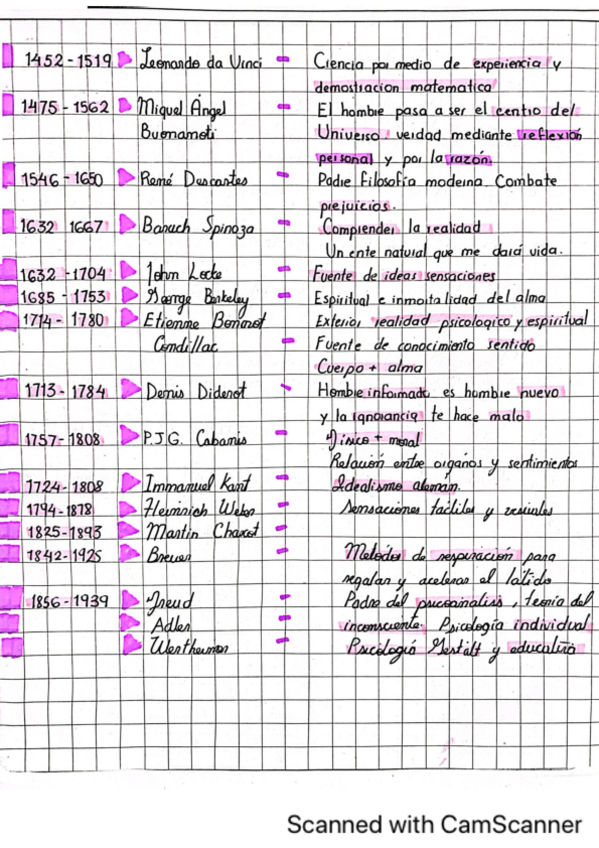 1452-1519 Leonardo da Vinci - Ciencia por medio de experiencia y
demostracion matematica
1475-1562 Miguel Ángel - El hombre pasa a ser el centro del
Buonarroti Universo. verdad mediante reflexión
personal y por la razón.
1546-1650 René Descartes - Padre Filosofía moderna. Combate
prejuicios.
1632 1667 Baruch Spinoza - Comprender la realidad
Un ente natural que me dará vida.
1632-1704 John Locke - Fuente de ideas sensaciones
1685-1753 George Berkeley - Espiritual e inmortalidad del alma
1714-1780 Etienne Bonnot Exterior realidad psicologico y espiritual
Condillac - Fuente de conocimiento sentido
Cuerpo + alma
1713-1784 Denis Diderot - Hombre informado es hombre nuevo
y la ignorancia te hace malo
1757-1808 P.J.G. Cabanis - Físico + moral
Relación entre organos y sentimientos
1724-1808 Immanuel Kant - Idealismo alemán.
1794-1878 Heinrich Weber - Sensaciones táctiles y
1825-1893 Martin Charcot -
1842-1925 Breuer - Metodos de respiración para
regular y acelerar el latido
1856-1939 Freud - Padre del psicoanalisis, teoria del
Adler - inconsciente. Psicología individual
Wertheimer - Psicología Gestalt y educativa
Scanned with CamScanner